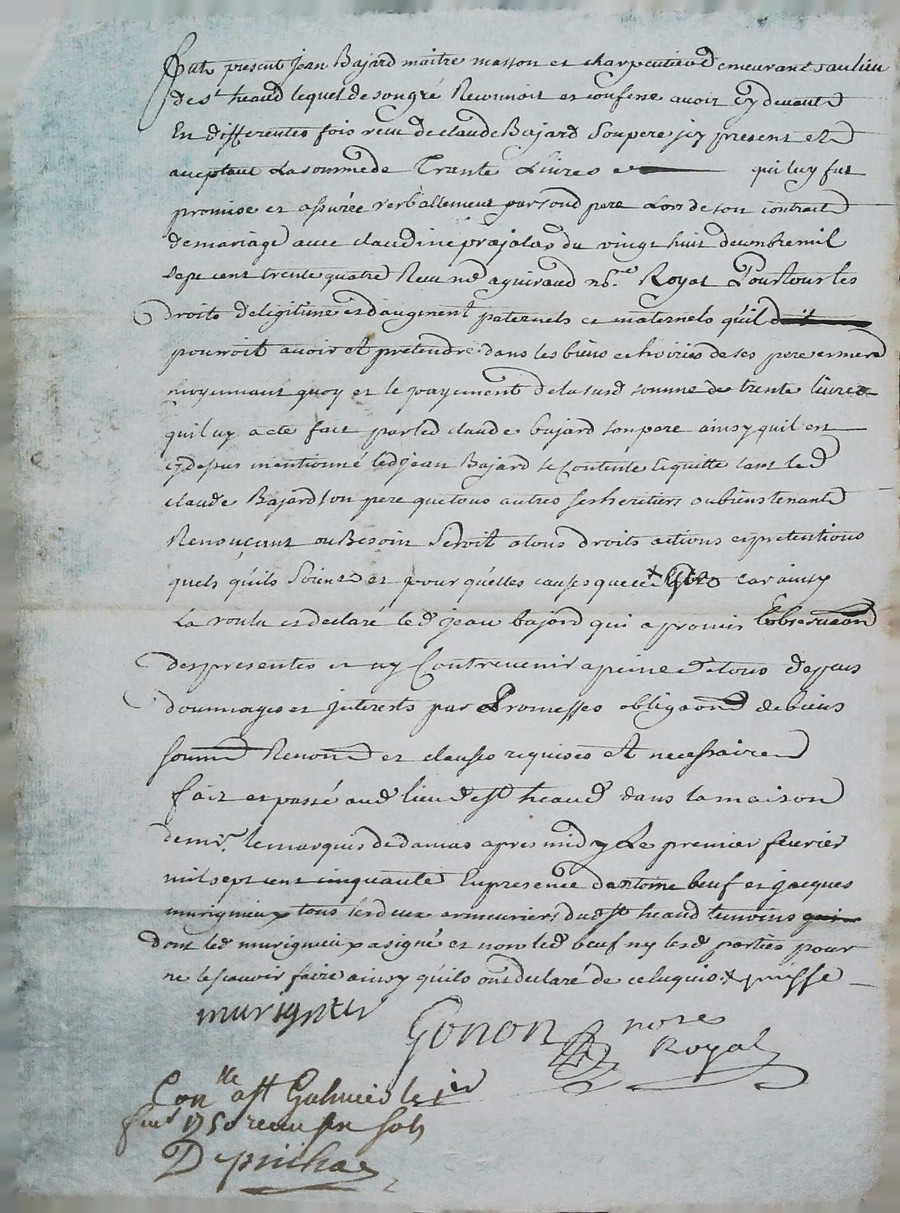 fut present jean Bajard maitre masson et charpentier demeurant au lieu
de st heand lequel de son gré Reconnoit et confesse avoir cy devant
En differentes fois reçu de claude Bajard Son pere icy present et
aceptant La somme de Trante Livres qui luy fut
promise et assurée verballement par sond pere Lors de son contrait
de mariage avec claudine du vingt huit
sept cent trente quatre Reçu me aguiraud nore Royal Pour tous les
droits de legitime et d'augment paternels et maternels qu'il doit
pourroit avoir et pretendre dans les biens et hoiries de ses pere et mere
moyennant quoy et le payement de la susd somme de trente livres
qui luy a eté fait par led claude bajard son pere ainsy qu'il est
cy depus mentionné led jean Bajard se Contente et quitte tant led
claude Bajard son pere que tous autres ses heretiers ou biens tenants
Renonçant au Besoin Seroit a tous droits actions et pretentions
quels qu'ils Soient et pour quelles causes que ce car ainsy
La voulu et declaré le d jean bajard qui a promis l'observaon
des presentes et ny Contrevenir a peine de tous depens
dommages et interests par Promesses obligaons de biens
soumd Renond et clauses requises Et necessaires
fait et passé aud lieu de st heand dans la maison
de mr. le marquis de damas apres midy Le premier fevrier
mil sept cent cinquante En presence d'antoine beuf et jacques
murigneux tous les deux armeuriers dud st heand temoins qui
dont led murigneux a signé et non led beuf ny lesd parties pour
ne le scavoir faire ainsy qu'ils ont declaré de ce enquis
murigneu
Gonon nore
Royal
Conlle a st Galmier le 1er
fier 1750 recu six sols